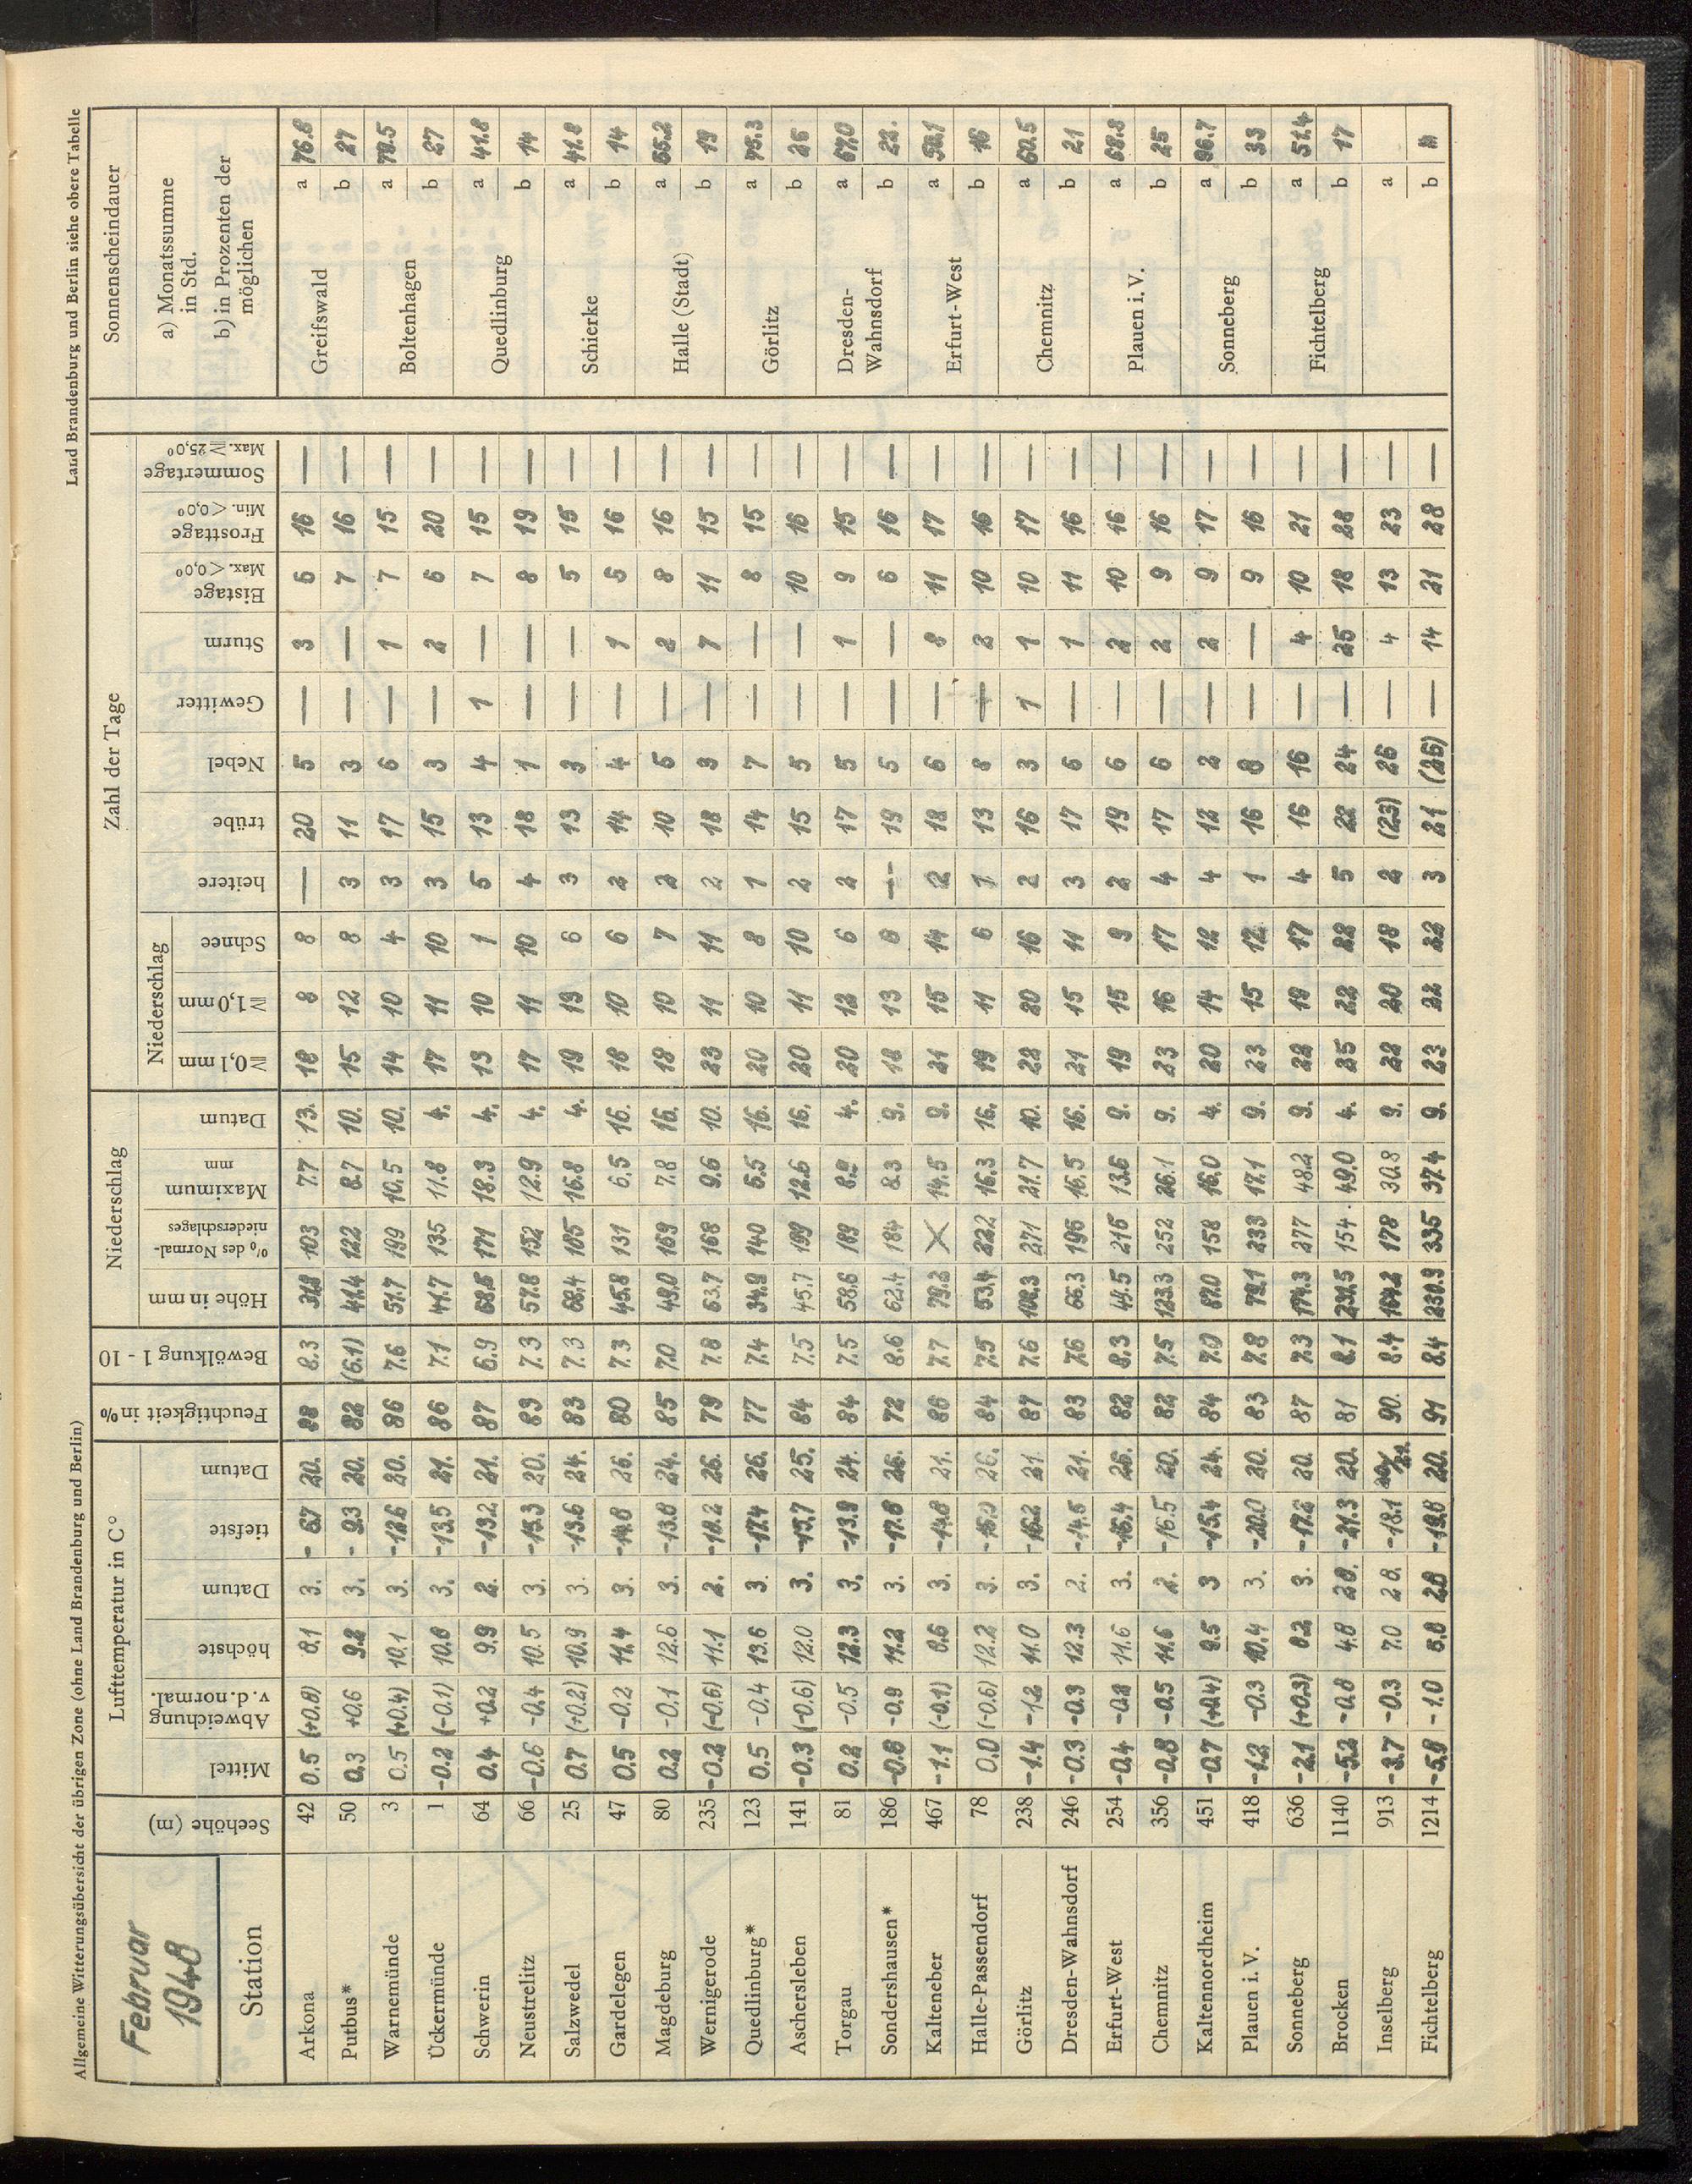 Allgemeine Witterungsübersicht der übrigen Zone (ohne Land Brandenburg und Berlin)
Land Brandenburg und Berlin siehe obere Tabelle
Februar 1948
Station Seehöhe (m) Lufttemperatur in C° Mittel Abweichung v. d. normal. höchste Datum tiefste Datum Feuchtigkeit in % Bewölkung 1 - 10 Niederschlag Höhe in mm % des Normalniederschlages Maximum mm Datum Zahl der Tage Niederschlag ≧0,1 mm ≧1,0 mm Schnee heitere trübe Nebel Gewitter Sturm Eistage Max. <0,0° Frosttage Min. <0,0° Sommertage Max. ≧25,0°
Arkona 42 0.5 (+0.8) 8.1 3. - 6.7 20. 88 8.3 103 7.7 13. 18 8 8 — 20 5 — 3 6 16 —
Putbus* 50 0.3 +0.6 9.2 3. - 9.3 20. 82 (6.1) 41.4 122 8.7 10. 15 12 8 3 11 3 — — 7 16 —
Warnemünde 3 0.5 (+0.4) 10.1 3. -12.6 20. 86 7.6 51.7 199 10.5 10. 14 10 4 3 17 6 — 1 7 15 —
Ückermünde 1 -0.2 (-0.1) 10.8 3. -13.5 21. 86 7.1 41.7 135 11.8 4. 17 11 10 3 15 3 — 2 6 20 —
Schwerin 64 0.4 +0.2 9.9 2. -13.2 21. 87 6.9 68.6 171 18.3 4. 13 10 1 5 13 4 1 — 7 15 —
Neustrelitz 66 -0.6 -0.4 10.5 3. -15.3 20. 89 7.3 57.8 152 12.9 4. 17 11 10 4 18 1 — — 8 19 —
Salzwedel 25 0.7 (+0.2) 10.9 3. -13.6 24. 83 7.3 68.4 185 16.8 4. 19 13 6 3 13 3 — — 5 15 —
Gardelegen 47 0.5 -0.2 11.4 3. -14.8 26. 80 7.3 45.8 131 6.5 16. 18 10 6 2 14 4 — 1 5 16 —
Magdeburg 80 0.2 -0.1 12.6 3. -13.8 24. 85 7.0 49.0 169 7.8 16. 18 10 7 2 10 5 — 2 8 16 —
Wernigerode 235 -0.2 (-0.6) 11.1 2. -18.2 26. 79 7.8 63.7 168 9.6 10. 23 11 11 2 18 3 — 7 11 15 —
Quedlinburg* 123 0.5 -0.4 13.6 3. -17.4 26. 77 7.4 34.9 140 6.5 16. 20 10 8 1 14 7 — — 8 15 —
Aschersleben 141 -0.3 (-0.6) 12.0 3. -15.7 25. 84 7.5 45.7 199 12.6 16. 20 11 10 2 15 5 — — 10 16 —
Torgau 81 0.2 -0.5 12.3 3. -13.9 24. 84 7.5 58.6 189 8.2 4. 20 12 6 2 17 5 — 1 9 15 —
Sondershausen* 186 -0.8 -0.9 11.2 3. -17.8 26. 72 8.6 62.4 184 8.3 9. 18 13 8 — 19 5 — — 6 16 —
Kalteneber 467 -1.1 (-0.1) 8.6 3. -14.8 21. 86 7.7 79.2 X 14.5 9. 21 15 14 2 18 6 — 8 11 17 —
Halle-Passendorf 78 0.0 (-0.6) 12.2 3. 26. 84 7.5 53.4 222 16.3 16. 19 11 6 1 13 8 — 2 10 16 —
Görlitz 238 -1.4 -1.2 11.0 3. -16.2 21. 87 7.6 102.3 271 21.7 10. 22 20 16 2 16 3 1 1 10 17 —
Dresden-Wahnsdorf 246 -0.3 -0.3 12.3 2. -14.5 21. 83 7.6 66.3 195 16.5 16. 21 15 11 3 17 6 — 1 11 16 —
Erfurt-West 254 -0.4 -0.8 11.6 3. -16.4 26. 82 8.3 49.5 215 13.6 9. 19 15 9 2 19 6 — 2 10 16 —
Chemnitz 356 -0.8 -0.5 11.6 2. -16.5 20. 82 7.5 123.3 252 26.1 9. 23 16 17 4 17 6 — 2 9 16 —
Kaltennordheim 451 -0.7 (+0.4) 9.5 3 -15.4 24. 84 7.0 87.0 158 16.0 4. 20 14 12 4 12 2 — 2 9 17 —
Plauen i. V. 418 -1.2 -0.3 10.4 3. -20.0 20. 83 7.8 79.1 233 17.1 9. 23 15 12 1 16 8 — — 9 16 —
Sonneberg 636 -2.1 (+0.3) 8.2 3. -17.2 20. 87 7.3 174.3 277 48.2 9. 22 19 17 4 16 16 — 4 10 21 —
Brocken 1140 -5.2 -0.8 4.8 28. -21.3 20. 81 8.1 231.5 154 49.0 4. 25 22 22 5 22 24 — 25 18 28 —
Inselberg 913 -3.7 -0.3 7.0 28. -18.1 20/21. 90. 8.4 164.2 178 30.8 9. 22 20 18 2 (23) 26 — 4 13 23 —
Fichtelberg 1214 -5.9 -1.0 5.8 28 -19.8 20. 91 8.4 230.9 335 37.4 9. 23 22 22 3 21 (26) — 14 21 28 —
Sonnenscheindauer
a) Monatssumme in Std.
b) in Prozenten der möglichen
Greifswald a 76.8 b 27
Boltenhagen a 78.5 b 27
Quedlinburg a 41.8 b 14
Schierke a 41.8 b 14
Halle (Stadt) a 55.2 b 19
Görlitz a 75.3 b 26
Dresden-Wahnsdorf a 67.0 b 22.
Erfurt-West a b 16
Chemnitz a 60.5 b 21
Plauen i. V. a 68.8 b 25
Sonneberg a 96.7 b 33
Fichtelberg a 51.4 b 17
a
b